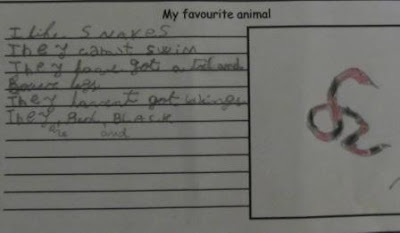 My favourite animal
I like SNAKES
They can't swim
They have got a tail and
They haven't got wings
They are Red and BLACK